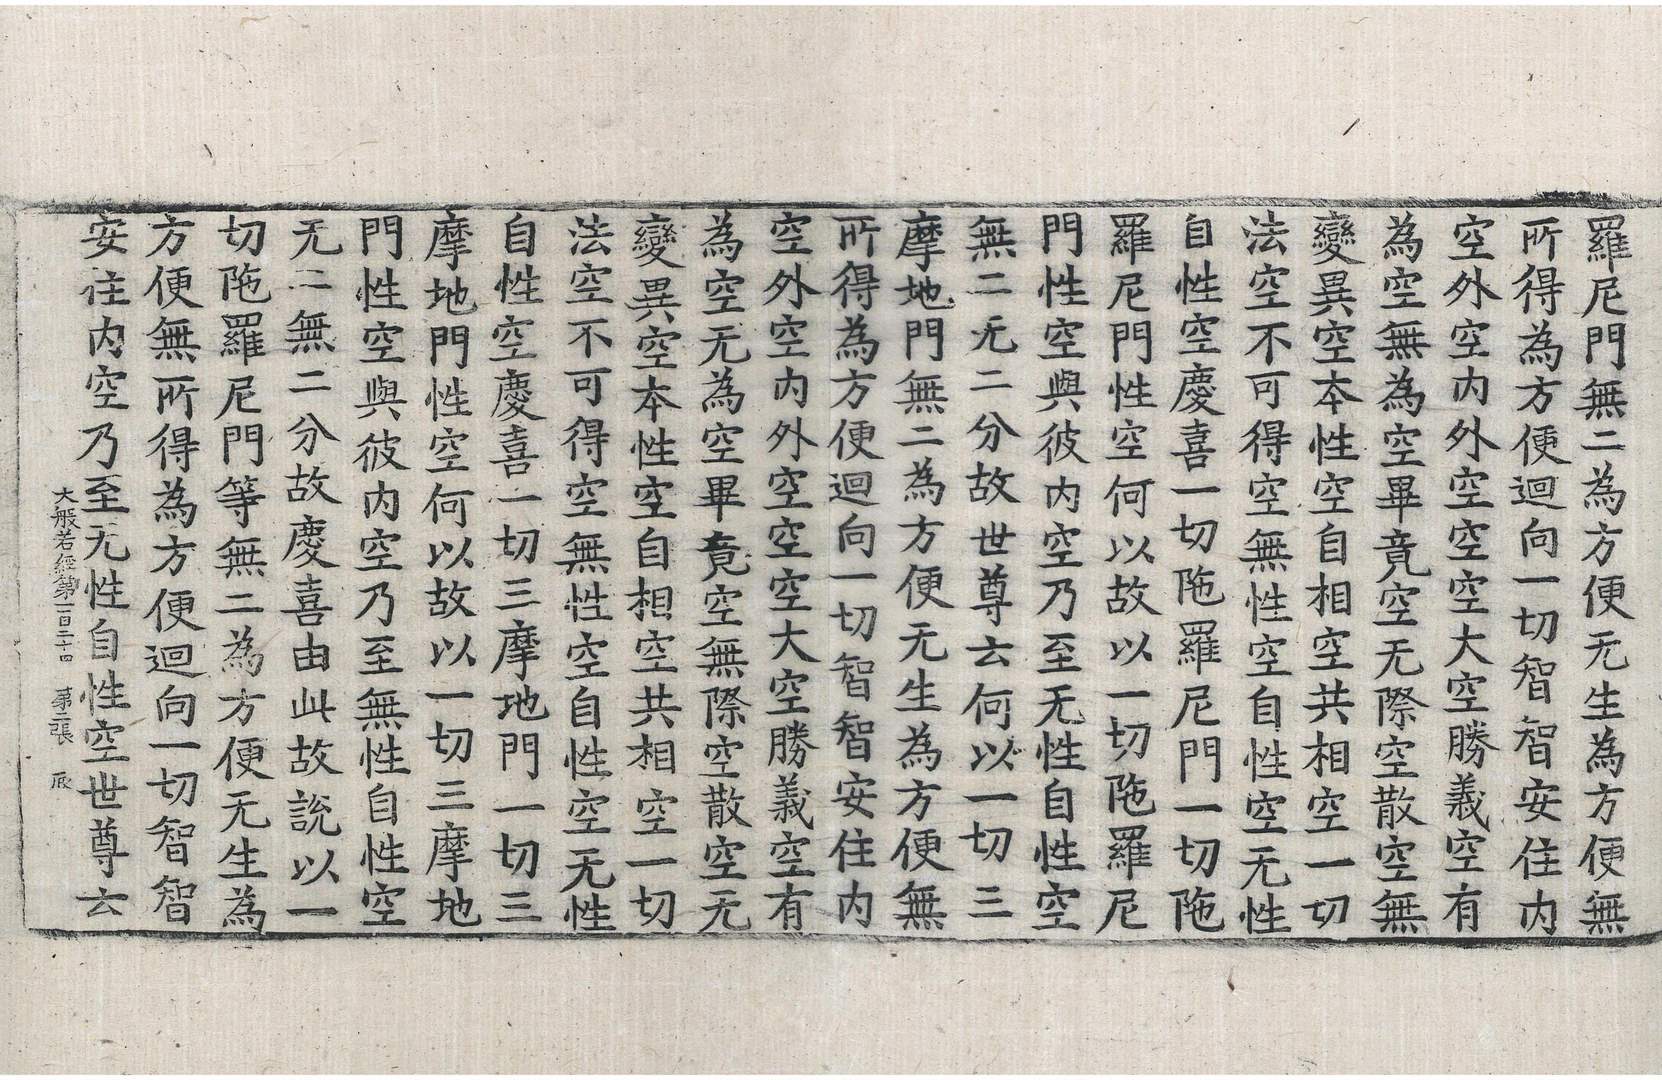 羅尼門無二為方便无生為方便無
所得為方便迴向一切智智安住内
空外空内外空空空大空勝義空有
為空無為空畢竟空无際空散空無
變異空本性空自相空共相空一切
法空不可得空無性空自性空无性
自性空慶喜一切陁羅尼門一切陁
羅尼門性空何以故以一切陁羅尼
門性空與彼内空乃至无性自性空
無二无二分故世尊云何以一切三
摩地門無二為方便无生為方便無
所得為方便迴向一切智智安住内
空外空内外空空空大空勝義空有
為空无為空畢竟空無際空散空无
變異空本性空自相空共相空一切
法空不可得空無性空自性空无性
自性空慶喜一切三摩地門一切三
摩地門性空何以故以一切三摩地
門性空與彼内空乃至無性自性空
无二無二分故慶喜由此故說以一
切陁羅尼門等無二為方便无生為
方便無所得為方便迴向一切智智
安住内空乃至无性自性空世尊云
大般若經第一百二十四 第二張 辰